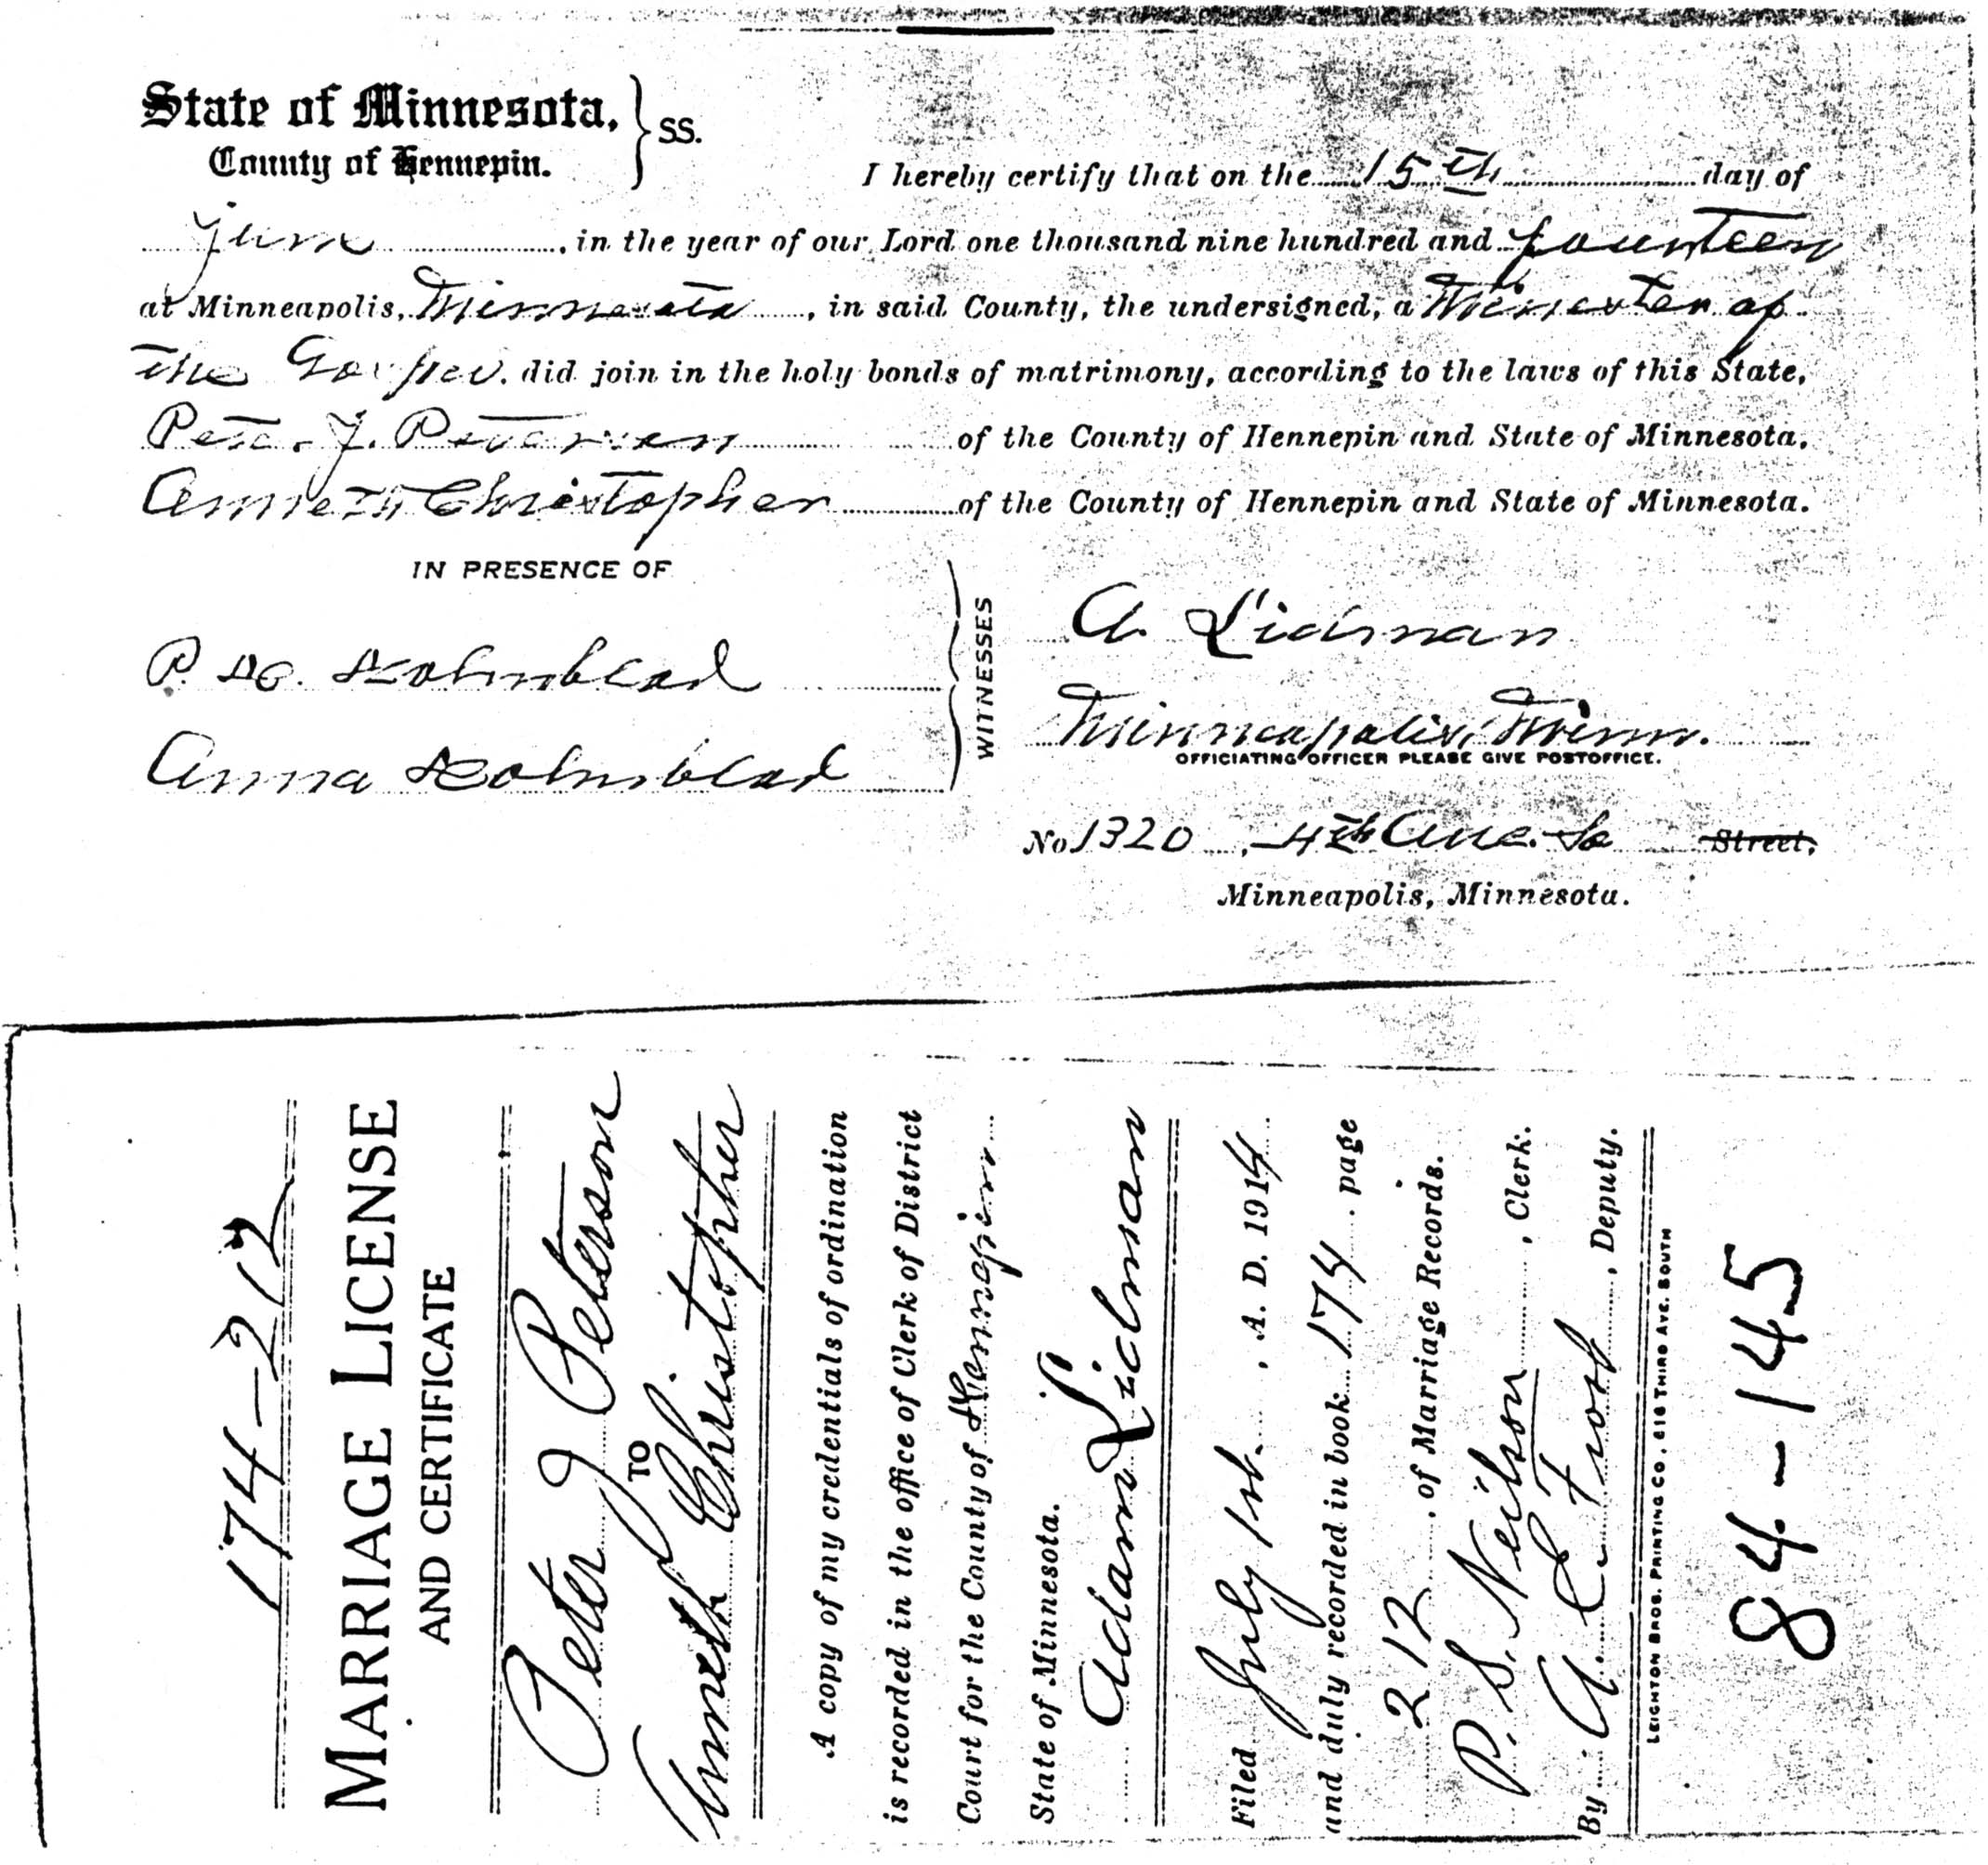 State of Minnesota,
County of Hennepin. } SS.
I hereby certify that on the 15th day of
June, in the year of our Lord one thousand nine hundred and fourteen
at Minneapolis, Minnesota, in said County, the undersigned, a Minister of
the Gospel. did join in the holy bonds of matrimony, according to the laws of this State,
J. Peterson of the County of Hennepin and State of Minnesota,
Anneth Christopher of the County of Hennepin and State of Minnesota.
IN PRESENCE OF
WITNESSES
A. Lidman
P. Holmblad
Minneapolis, Minn.
OFFICIATING OFFICER PLEASE GIVE POSTOFFICE.
Anna Holmblad
No 1320, 4th Ave. So Street,
Minneapolis, Minnesota.
174-212
MARRIAGE LICENSE
AND CERTIFICATE
Peter J Peterson
TO
Anneth Christopher
A copy of my credentials of ordination
is recorded in the office of Clerk of District
Court for the County of Hennepin
State of Minnesota.
Adam Lidman
Filed July 1st, A. D. 1914
and duly recorded in book 174 page
212 of Marriage Records.
P. S. Neilson, Clerk.
By A. E. , Deputy.
LEIGHTON BROS. PRINTING CO. 616 THIRD AVE. SOUTH
84-145